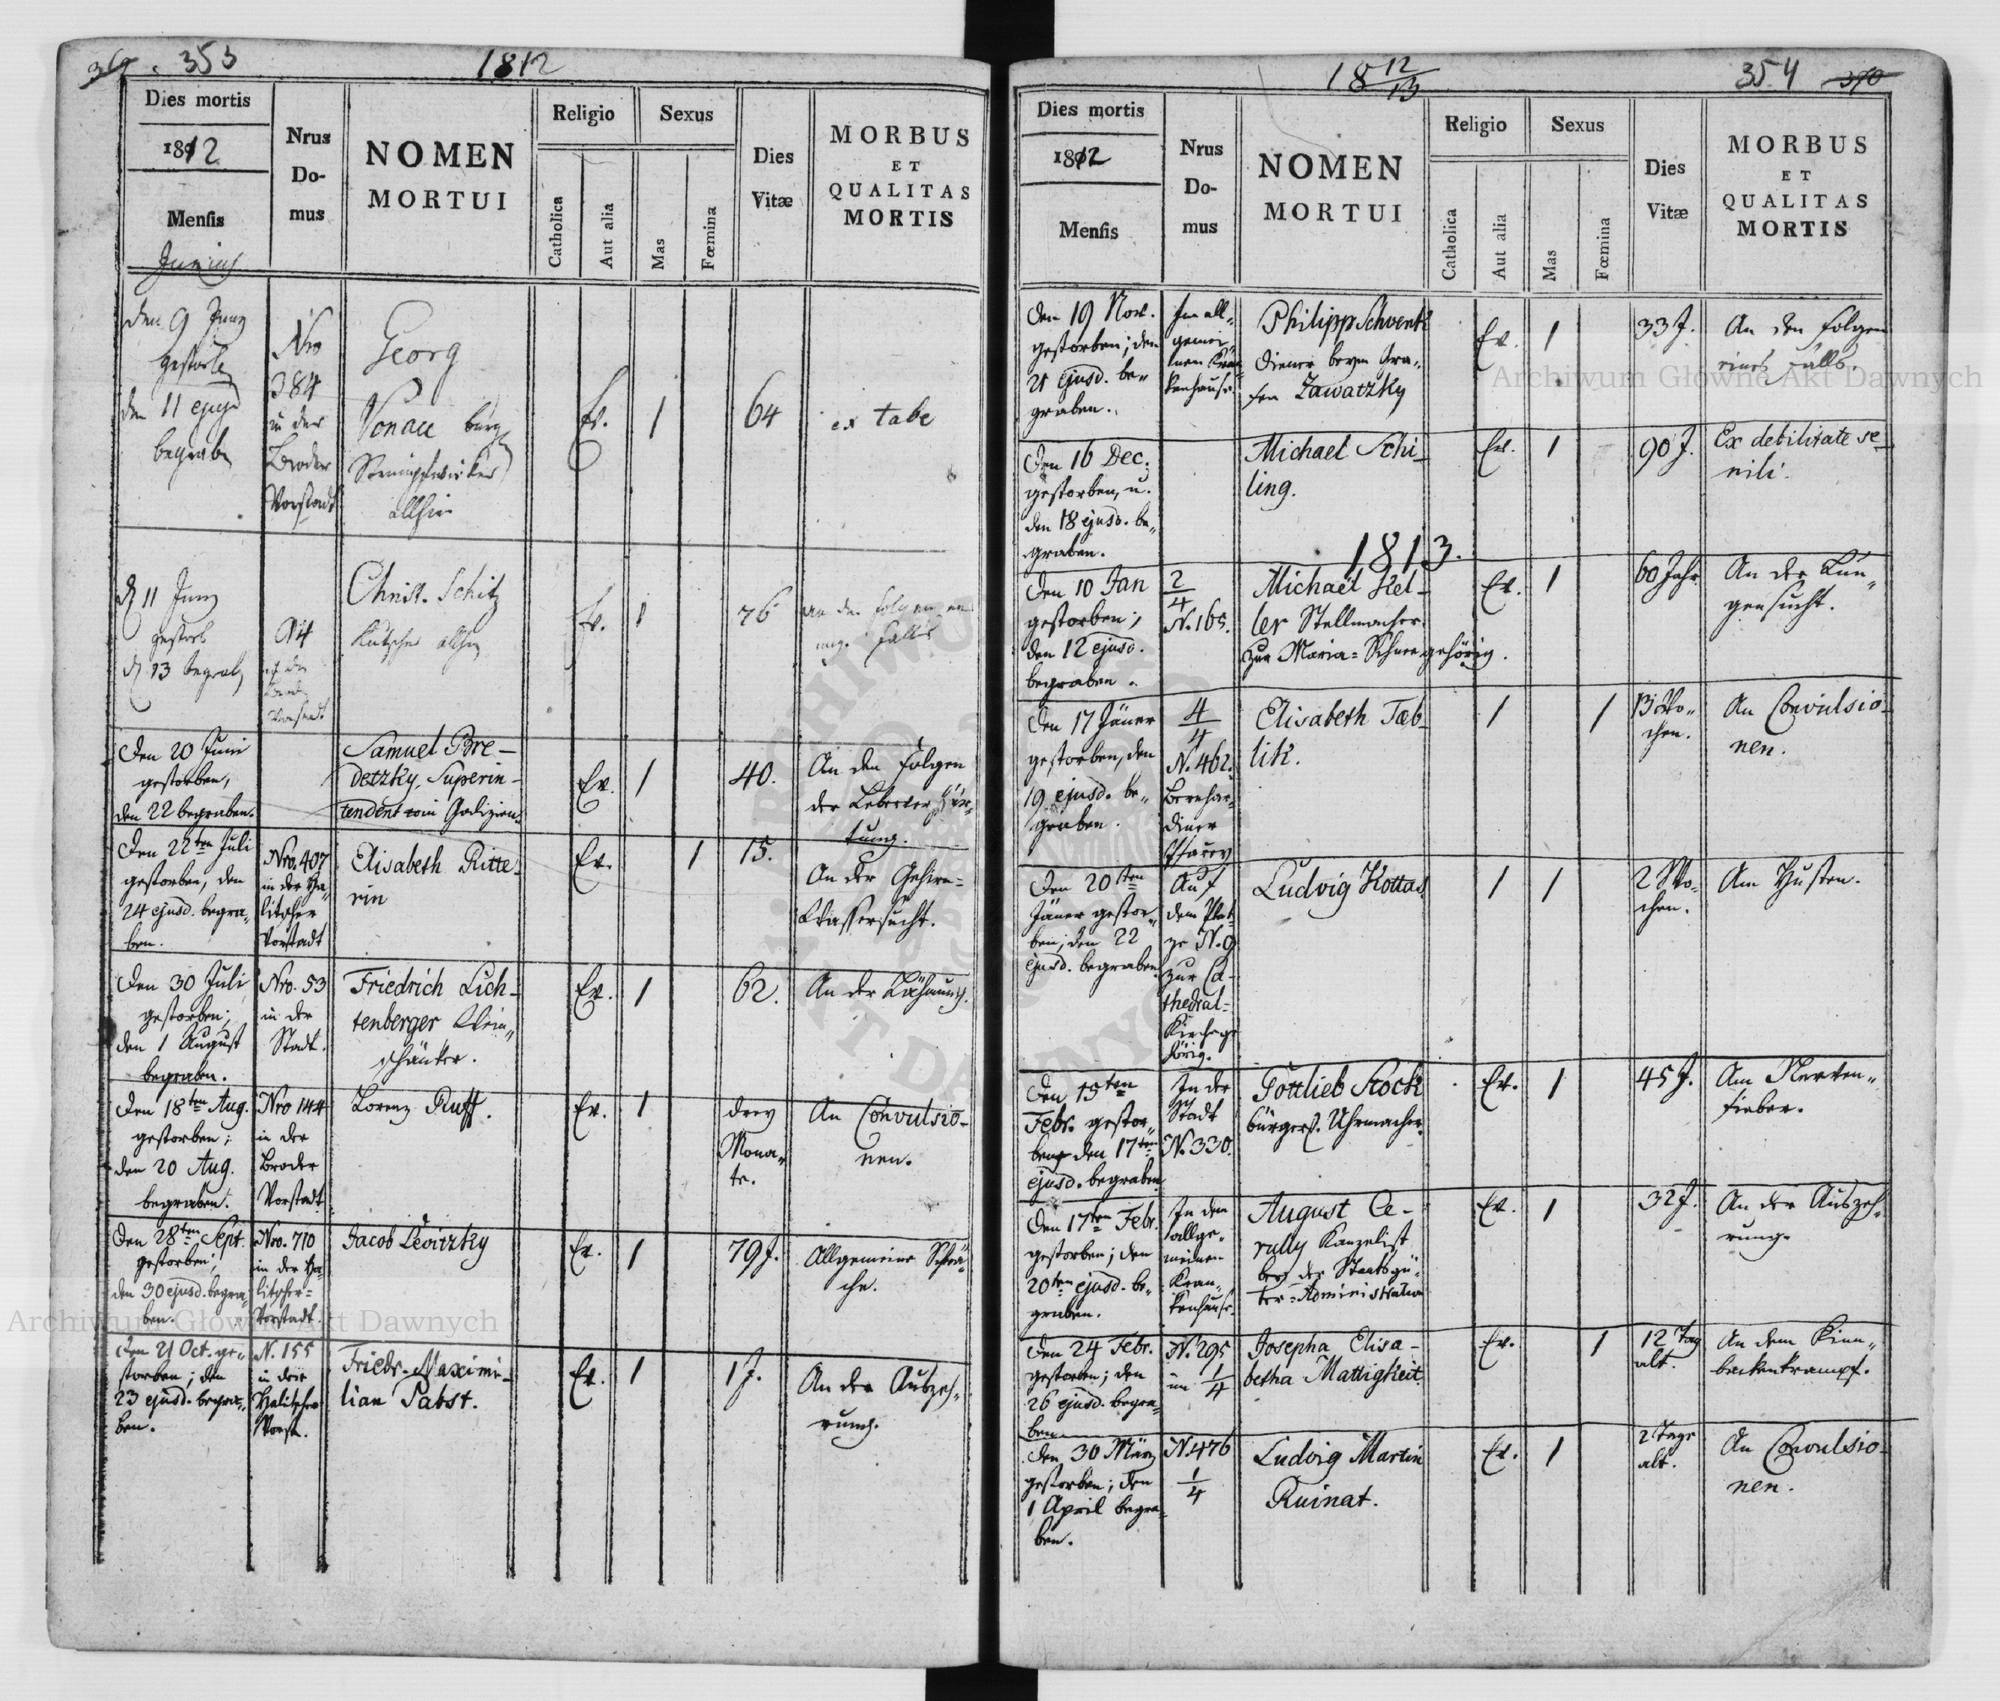 369. 353
1812
Dies mortis
1812
Mensis
Junius
Nrus
Do-
mus
NOMEN
MORTUI
Religio
Catholica
Aut alia
Sexus
Mas
Fœmina
Dies
Vitæ
MORBUS
ET
QUALITAS
MORTIS
den 9 Juny
gestorben
den 11 ejusd
begraben
Nro
384
in der
Broder
Vorstadt
Georg
Vonau bürg
Strumpfwirker
allhier
Ev.
1
64
ex tabe
d 11 Juny
gestorb
d 13 begrab
Christ. Schitz
Kutscher allhier
Ev.
1
76
an den folgen
Falls
Den 20 Juni
gestorben,
den 22 begraben.
Samuel Bre-
detzky, Superin-
tendent von Galizien.
Ev.
1
40.
An den Folgen
der Leberver Här-
tung.
Den 22ten Juli
gestorben, den
24 ejusd. begra-
ben.
Nro. 407
in der Ha-
litscher
Vorstadt
Elisabeth Ritte-
rin
Ev.
1
15.
An der Gehirn-
Wassersucht.
Den 30 Juli
gestorben;
den 1 August
begraben.
Nro. 53
in der
Stadt.
Friedrich Lich-
tenberger Wein-
schänker.
Ev.
1
62.
An der Lähmung.
Den 18ten Aug.
gestorben;
den 20 Aug.
begraben.
Nro 144
in der
Broder
Vorstadt
Lorenz Ruff.
Ev.
1
drey
Mona-
te.
An Convulsio-
nen.
Den 28ten Sept.
gestorben;
den 30 ejusd. begra-
ben.
Nro. 710
in der Ha-
litscher-
Vorstadt.
Jacob Levitzky
Ev.
1
79 J.
Allgemeine Schwä-
che.
Den 21 Oct. ge-
storben; den
23 ejusd. begra-
ben.
N. 155
in der
Halitscher
Vorst.
Friedr. Maximi-
lian Pabst.
Ev.
1
1 J.
An der Auszeh-
rung.
18 12/13
354 370
Dies mortis
1812
Mensis
Nrus
Do-
mus
NOMEN
MORTUI
Religio
Catholica
Aut alia
Sexus
Mas
Fœmina
Dies
Vitæ
MORBUS
ET
QUALITAS
MORTIS
Den 19 Nov.
gestorben; den
21 ejusd. be-
graben.
Im all-
gemei-
nen Kran-
kenhause.
Philipp Schwenk
Diener beym Gra-
fen Zawatzky
Ev.
1
33 J.
An den Folgen
eines Falls.
Den 16 Dec.
gestorben, u.
den 18 ejusd. be-
graben.
Michael Schi-
ling.
Ev.
1
90 J.
Ex debilitate se-
nili.
1813.
Den 10 Jan
gestorben;
den 12 ejusd.
begraben.
2/4
N. 165.
Michael Kel-
ler Stellmacher
zur Maria-Schnee gehörig.
Ev.
1
60 Jahr
An der Lun-
gensucht.
Den 17 Jäner
gestorben, den
19 ejusd. be-
graben.
4/4
N. 462.
Bernhar-
diner
Pfarrey
Elisabeth Tæb-
lik.
1
1
13 Wo-
chen.
An Convulsio-
nen.
Den 20sten
Jäner gestor-
ben; den 22
ejusd. begraben.
Auf
dem Plat-
ze N. 9
zur Ca-
thedral-
Kirche ge-
hörig.
Ludwig Kottas
1
1
2 Wo-
chen.
Am Husten.
Den 15ten
Febr. gestor-
ben den 17ten
ejusd. begraben
In der
Stadt
N. 330.
Gottlieb Stock
bürgerl. Uhrmacher.
Ev.
1
45 J.
Am Nerven-
fieber.
Den 17ten Febr.
gestorben; den
20ten ejusd. be-
graben.
In dem
allge-
meinen
Kran-
kenhause.
August Ce-
rully Kanzelist
bey der Staatsgü-
ter-Administration
Ev.
1
32 J.
An der Auszeh-
rung.
Den 24 Febr.
gestorben; den
26 ejusd. begra-
ben.
N. 295
im 1/4
Josepha Elisa-
betha Mattigkeit.
Ev.
1
12 Tag
alt.
An dem Kinn-
backenkrampf.
Den 30 März
gestorben; den
1 April begra-
ben.
N. 476
1/4
Ludwig Martin
Ruinat.
Ev.
1
2 Tage
alt.
An Convulsio-
nen.
Archiwum Główne Akt Dawnych
Archiwum Główne Akt Dawnych